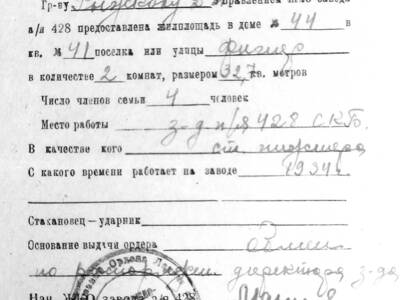 Гр-ну Рыжкову
а/я 428 предоставлена жилплощадь в доме № 44 в
кв. № 41 поселка или улицы
в количестве 2 комнат, размером 32,7 кв. метров
Число членов семьи 4 человек
Место работы з-д п/я 428 СКБ.
В качестве кого ст. инженера
С какого времени работает на заводе 1934 г.
Стахановец—ударник
Основание выдачи ордера
по директора з-да
Нач. ЖКО завода а/я 428